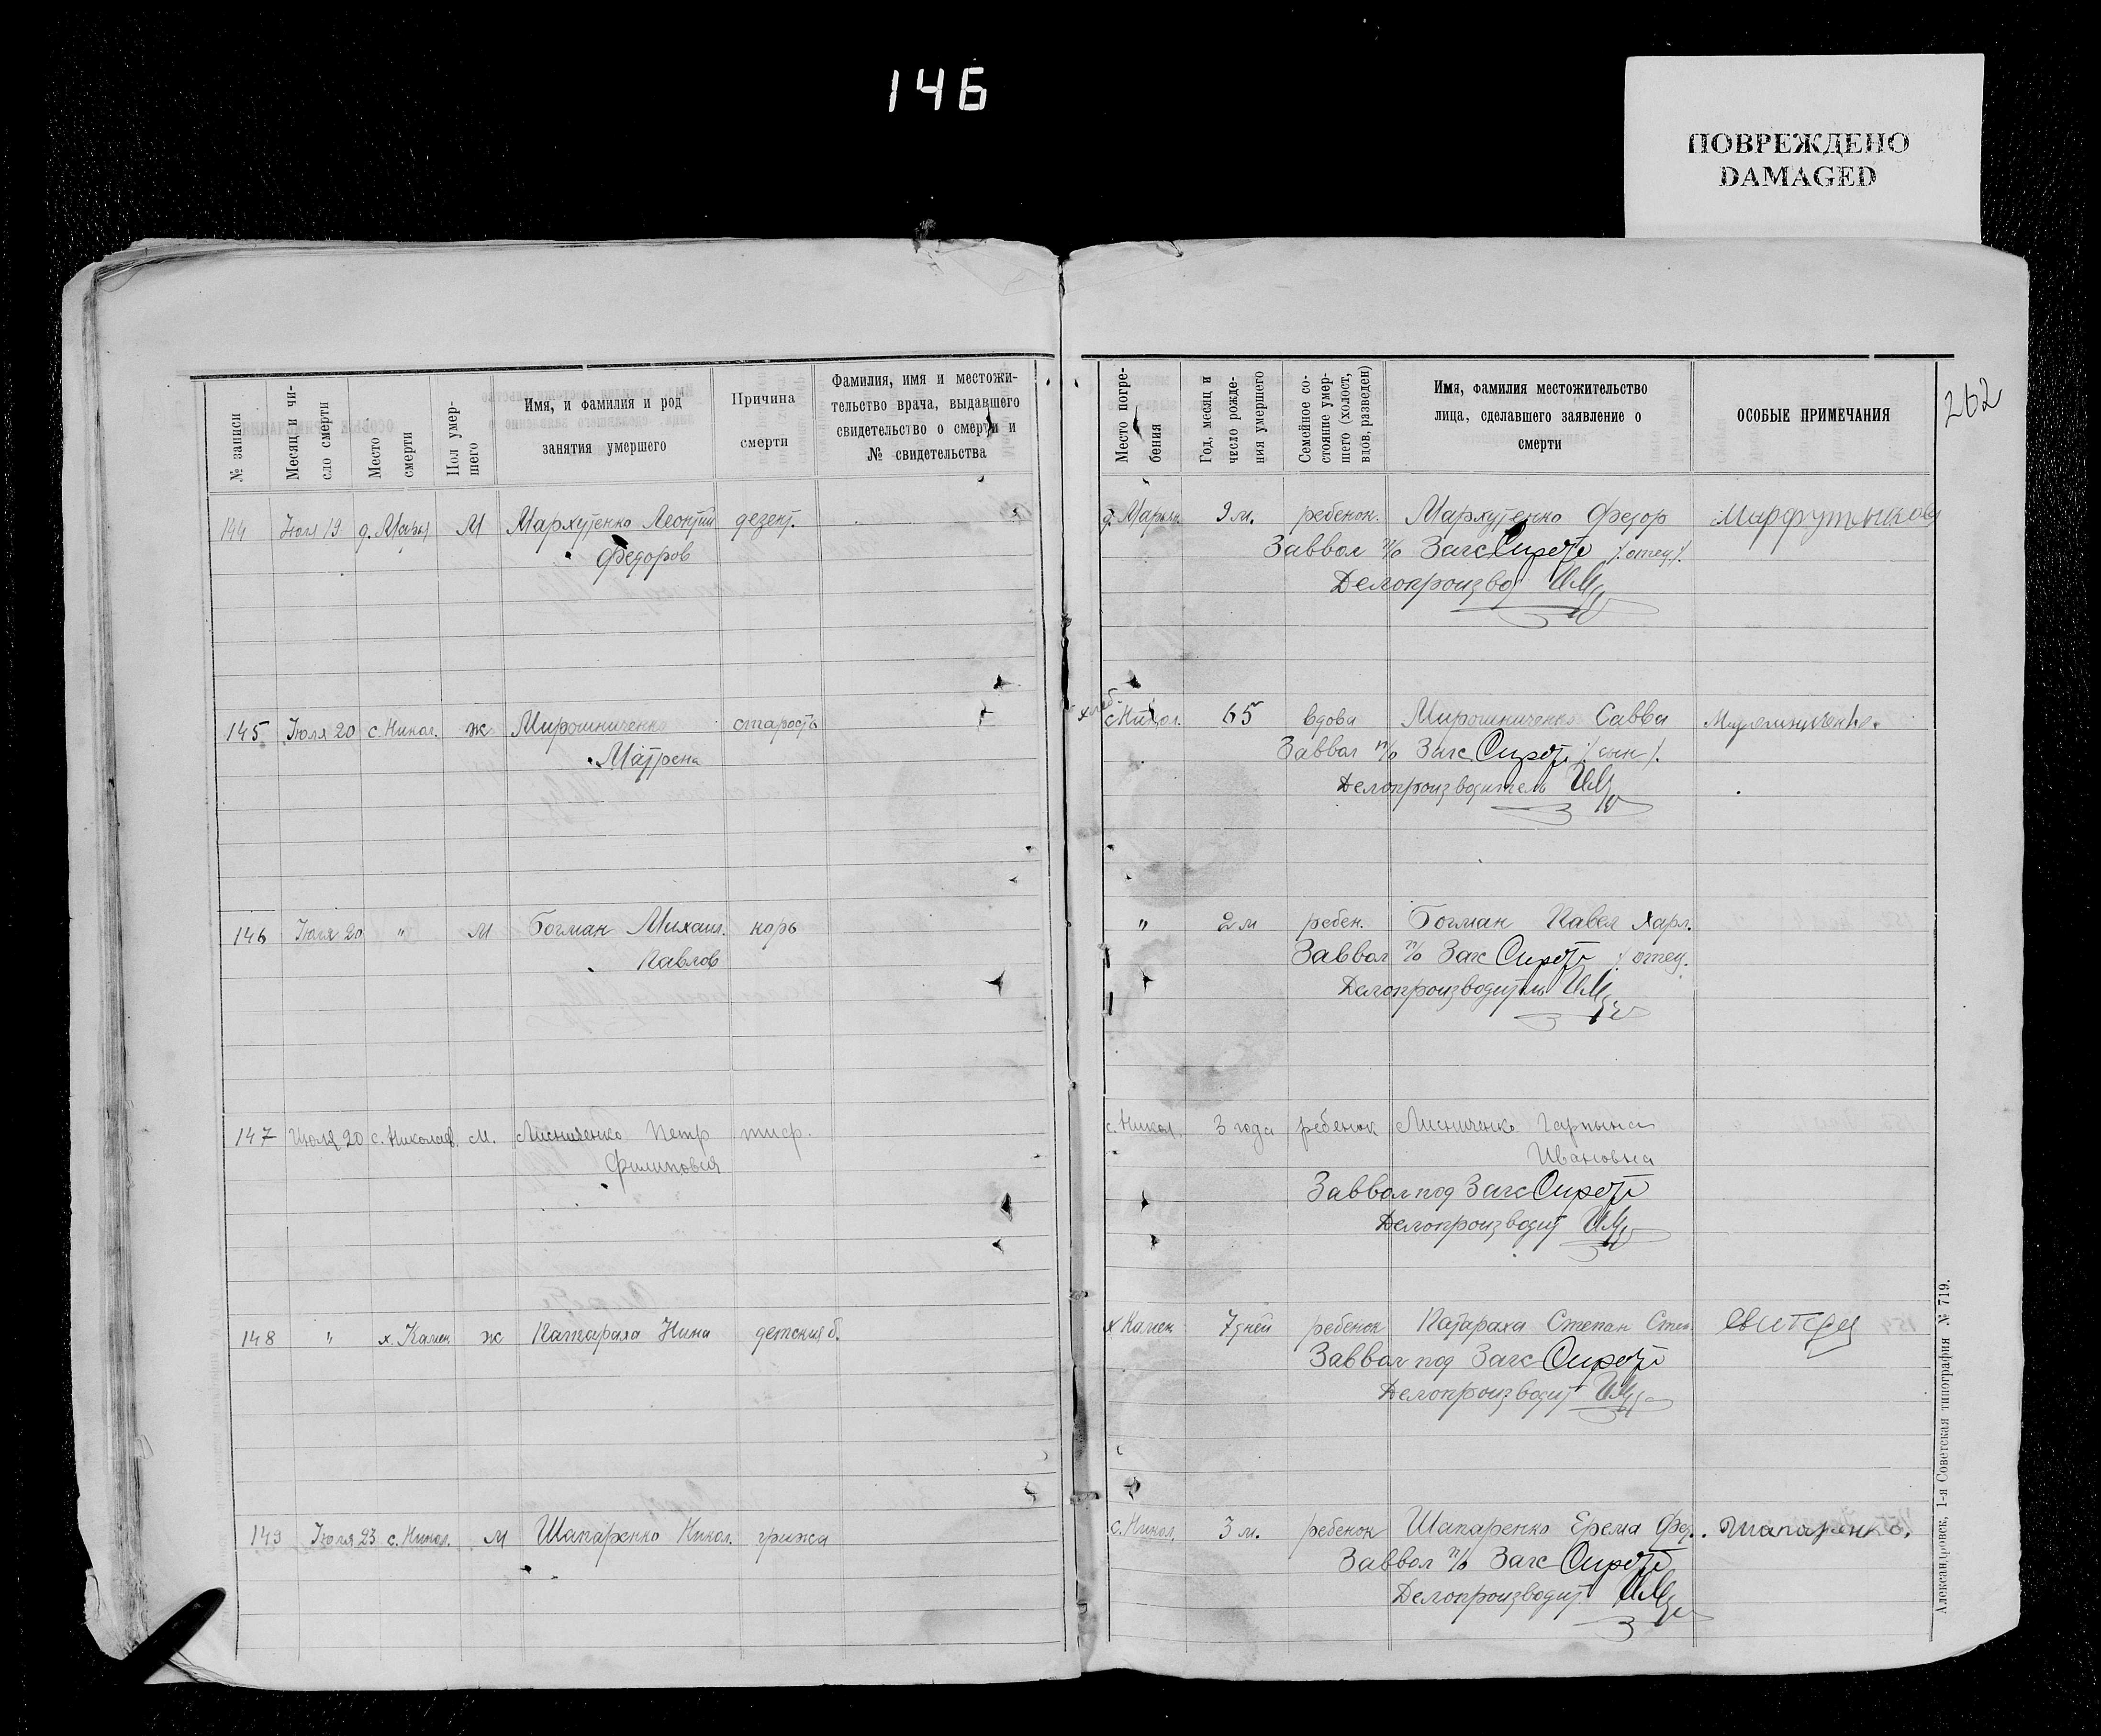 146
ПОВРЕЖДЕНО
DAMAGED
262
№ записи
Месяц и чи-
сло смерти
Место
смерти
Пол умер-
шего
Имя, и фамилия и род
занятия умершего
Причина
смерти
Фамилия, имя и местожи-
тельство врача, выдавшего
свидетельство о смерти и
№ свидетельства
Место погре-
бения
Год, месяц и
число рожде-
ния умершего
Семейное со-
стояние умер-
шего (холост,
вдов, разведен)
Имя, фамилия местожительство
лица, сделавшего заявление о
смерти
ОСОБЫЕ ПРИМЕЧАНИЯ
144 Июля 19 д. Марья М Мархутенко Леонтий дезент.
Федоров
д. Марьян. 9 м. ребенок. Мархутенко Федор
Заввол п/о Загс Сирота /отец/.
Делопроизвод
145 Июля 20 с. Никол. ж Мирошниченко старость
Матрена
с Никол. 65 вдова Мирошниченко Савва
Заввол п/о Загс Сирота /сын/.
Делопроизводитель
146 Июля 20 " М Богман Михаил. корь
Павлов
" 2 м ребен. Богман Павел Харл.
Заввол п/о Загс Сирота / отец.
Делопроизводитель
147 Июля 20 с. Николаев. м. Лисниченко Петр тиф.
Филиповся
с. Никол. 3 года ребенок Лисниченко Гарпына
Ивановна
Заввол под Загс Сирота
Делопроизводит
148 " х. Камен ж Патараха Нина детския б.
х Камен 7 дней ребенок Патараха Степан Степ.
Заввол под Загс Сирота
Делопроизводит
149 Июля 23 с. Никол. М Шапаренко Никол. грижа
с. Никол. 3 м. ребенок Шапаренко Ерема Фед. Шапаренко.
Заввол п/о Загс Сирота
Делопроизводит
Александровск, 1-я Советская типография № 719.